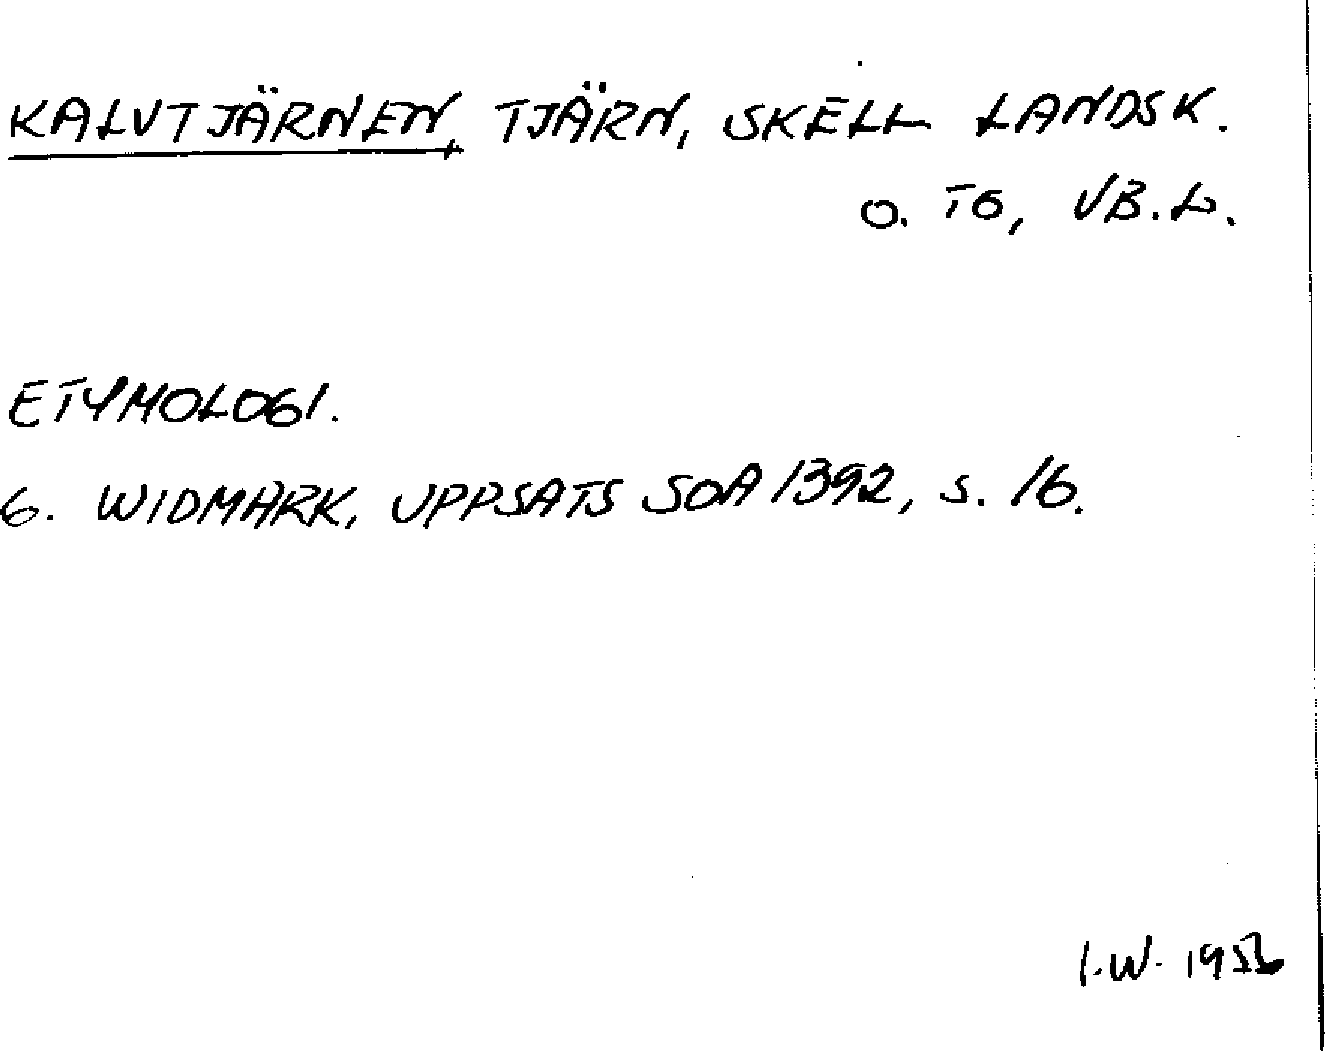 KALVTJÄRNEN, TJÄRN, SKELL LANDSK.
O. TG, VB.L.
ETYMOLOGI.
G. WIDMARK, UPPSATS SOA 1392, S. 16.
I.W. 1956